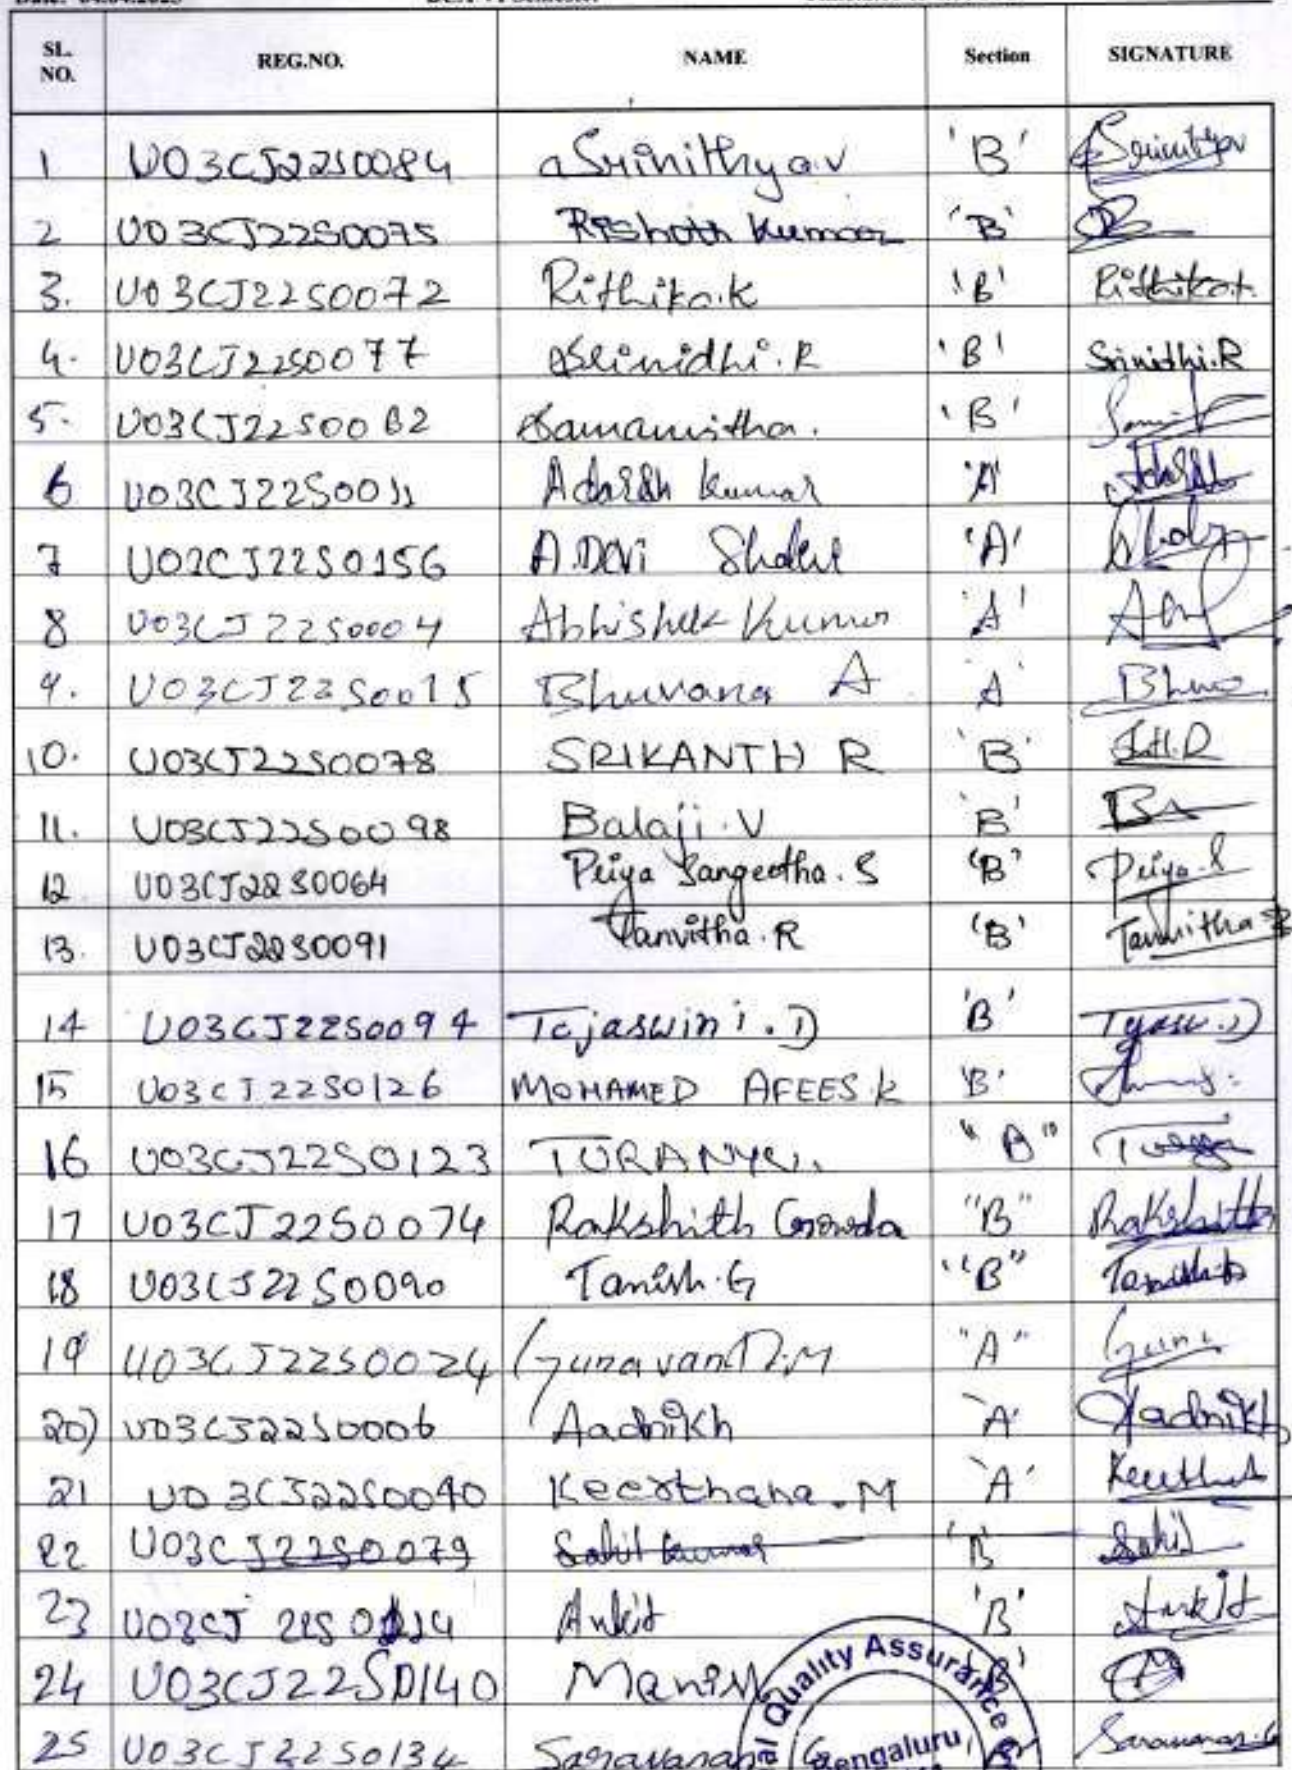 SL. NO. REG.NO. NAME Section SIGNATURE
1 U03CJ22S0084 Srinithya.v 'B' Srinithya
2 U03CJ22S0075 Kumar 'B'
3. U03CJ22S0072 Rithika.K 'B' Rithika.k
4. U03CJ22S0077 Srinidhi.R 'B' Srinidhi.R
5. U03CJ22S0082 Samanvitha. 'B'
6 U03CJ22S0011 Adarsh Kumar 'A' Adarsh
7 U03CJ22S0156 A.Devi 'A'
8 U03CJ22S0004 Abhishek Kumar 'A'
9. U03CJ22S0015 Bhuvana A 'A' Bhuva
10. U03CJ22S0078 SRIKANTH R 'B'
11. U03CJ22S0098 Balaji.V 'B'
12. U03CJ22S0064 Priya Sangeetha.S 'B' Priya.S
13. U03CJ22S0091 Tanvitha.R 'B' Tanvitha
14 U03CJ22S0094 Tejaswini.D 'B'
15 U03CJ22S0126 MOHAMED AFEES K 'B'
16 U03CJ22S0123 "B"
17 U03CJ22S0074 Rakshith Gowda "B" Rakshith
18 U03CJ22S0090 Tanish.G "B" Tanish.G
19 U03CJ22S0024 Gunavan D.M "A" Guna
20) U03CJ22S0006 Aadnikh 'A' Aadnikh
21 U03CJ22S0040 Keerthana.M 'A'
22 U03CJ22S0079 Sahil Kumar 'B' Sahil
23 U03CJ 22S0114 Ankit 'B' Ankit
24 U03CJ22S0140 Manish 'B'
Quality Assurance
25 U03CJ22S0134 Saravanan G 'B' Saravanan.G
Bengaluru